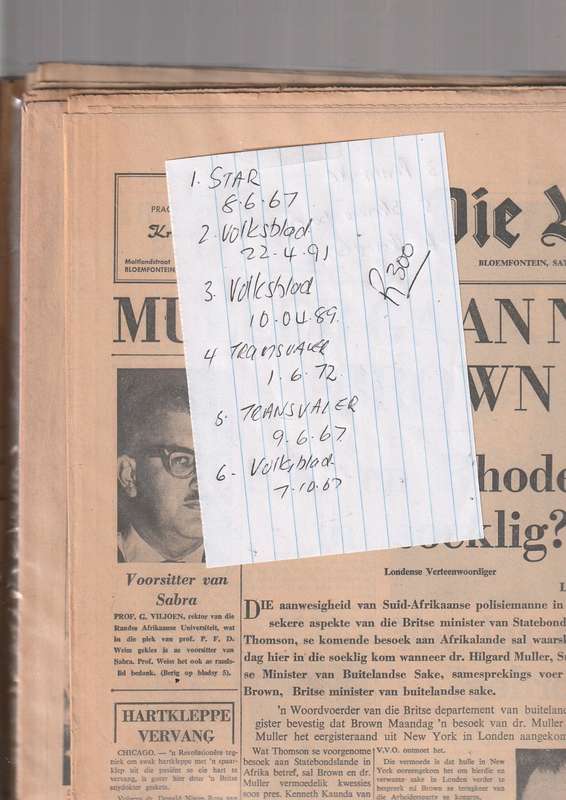 1. STAR
8.6.67
2. Volksblad
22.4.91
3. Volksblad
10.04.89.
4 TRANSVALER
1.6.72.
5. TRANSVALER
9.6.67
6- Volksblad
7.10.67
R300
PRAG
Kr
Maitlandstraat
BLOEMFONTEIN
Die
BLOEMFONTEIN, SAT
MU
AN N
WN
hode
oeklig?
Londense Verteenwoordiger
Voorsitter van
Sabra
PROF. G. VILJOEN, rektor van die
Randse Afrikaanse Universiteit, wat
in die plek van prof. P. F. D.
Weiss gekies is as voorsitter van
Sabra. Prof. Weiss het ook as raads-
lid bedank. (Berig op bladsy 5).
HARTKLEPPE
VERVANG
CHICAGO. — 'n Revolusionêre teg-
niek om swak hartkleppe met 'n spaar-
klep uit die pasiënt se eie hart te
vervang, is gister hier deur 'n Britse
snydokter geskets.
Volgens dr. Donald Nixon Ross van
DIE aanwesigheid van Suid-Afrikaanse polisiemanne in
sekere aspekte van die Britse minister van Statebond
Thomson, se komende besoek aan Afrikalande sal waarsk
dag hier in die soeklig kom wanneer dr. Hilgard Muller, S
se Minister van Buitelandse Sake, samesprekings voer
Brown, Britse minister van buitelandse sake.
'n Woordvoerder van die Britse departement van buiteland
gister bevestig dat Brown Maandag 'n besoek van dr. Muller
Muller het eergisteraand uit New York in Londen aangekom
Wat Thomson se voorgenome
besoek aan Statebondslande in
Afrika betref, sal Brown en dr.
Muller vermoedelik kwessies
soos pres. Kenneth Kaunda van
V.V.O. ontmoet het.
Die vermoede is dat hulle in New
York ooreengekom het om hierdie en
verwante sake in Londen verder te
bespreek ná Brown se terugkeer van
die Arbeidersparty se kongres.